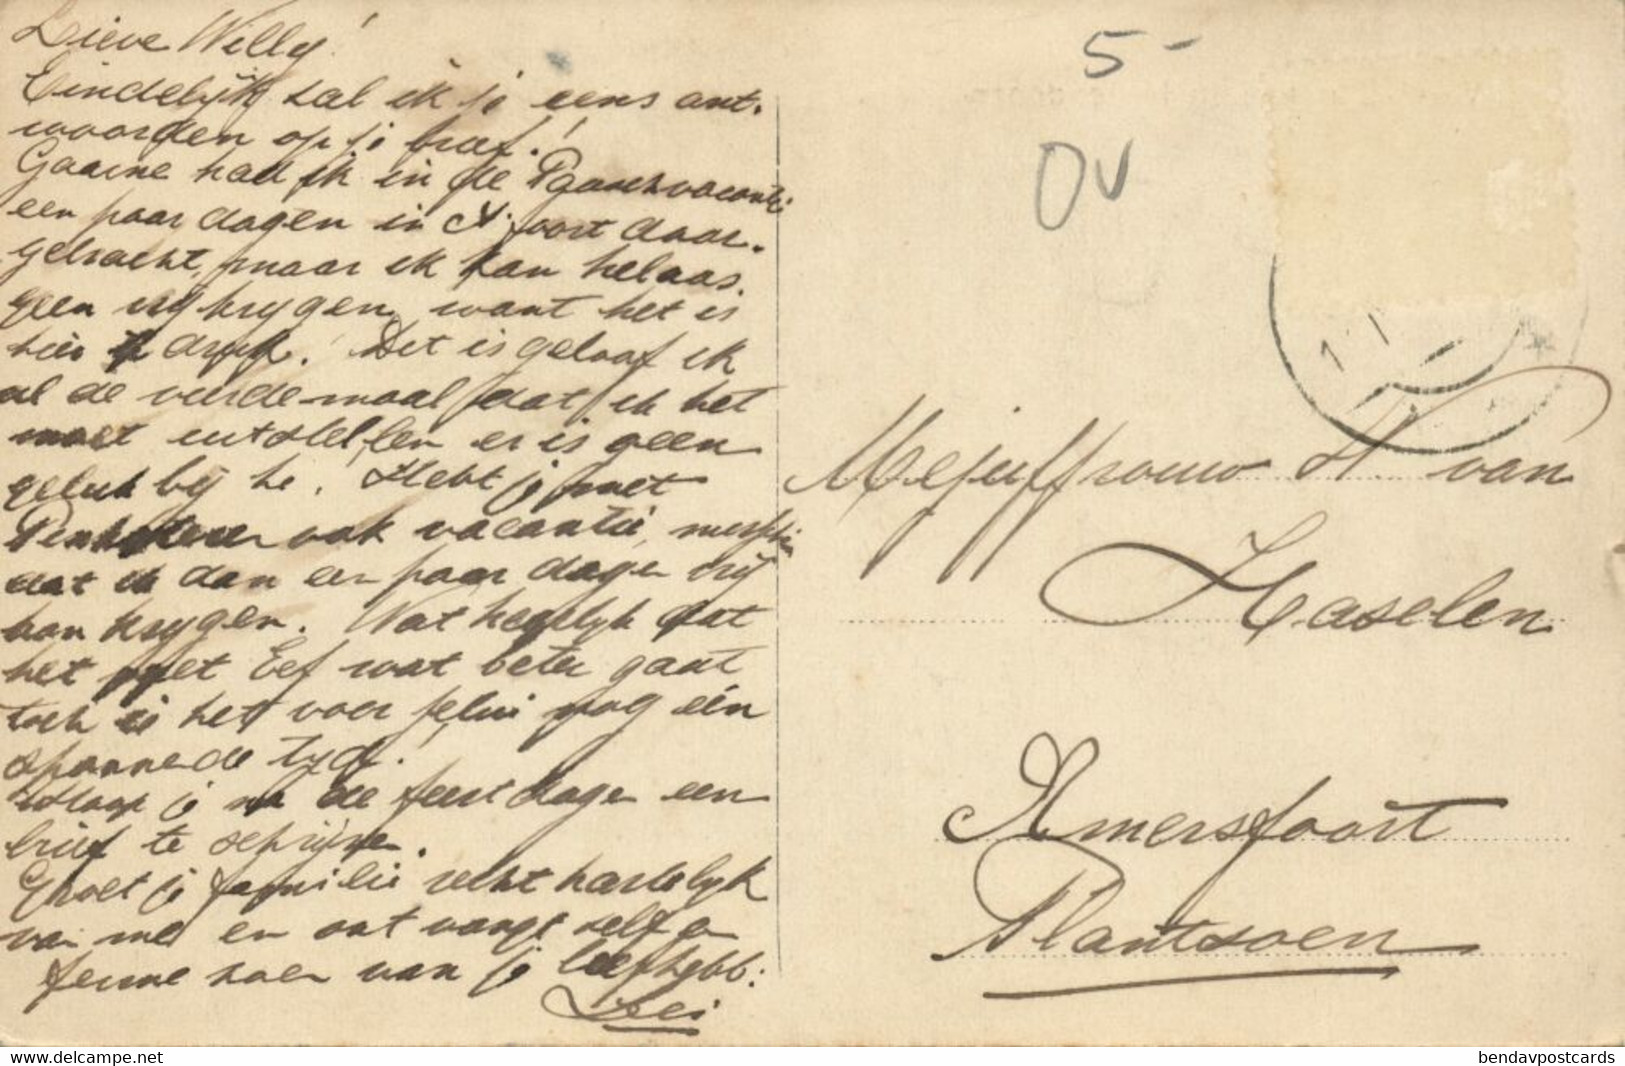 Lieve Willy!
Eindelijk zal ik je eens ant-
woorden op je brief!
Gaarne had ik in de Paaschvacantie
een paar dagen in A'foort door-
gebracht, maar ik kan helaas
geen vrij krygen, want het is
hier te druk! Dit is geloof ik
al de vierde maal dat ik het
moet uitstellen er is geen
geluk bij he! Hebt je met
Pinksteren ook vacantie, misschien
dat ik dan een paar dagen vrij
kan krygen. Wat heerlijk dat
het met Eef wat beter gaat
toch is het voor jelui nog een
spannende tyd!
je na de feestdagen een
brief te schrijven.
Groet je familie recht hartelijk
van me en ontvangt zelf een
ferme zoen van je liefhebb:
5-
OV
Mejuffrouw W van
Haselen
Amersfoort
Plantsoen
www.delcampe.net
bendavpostcards